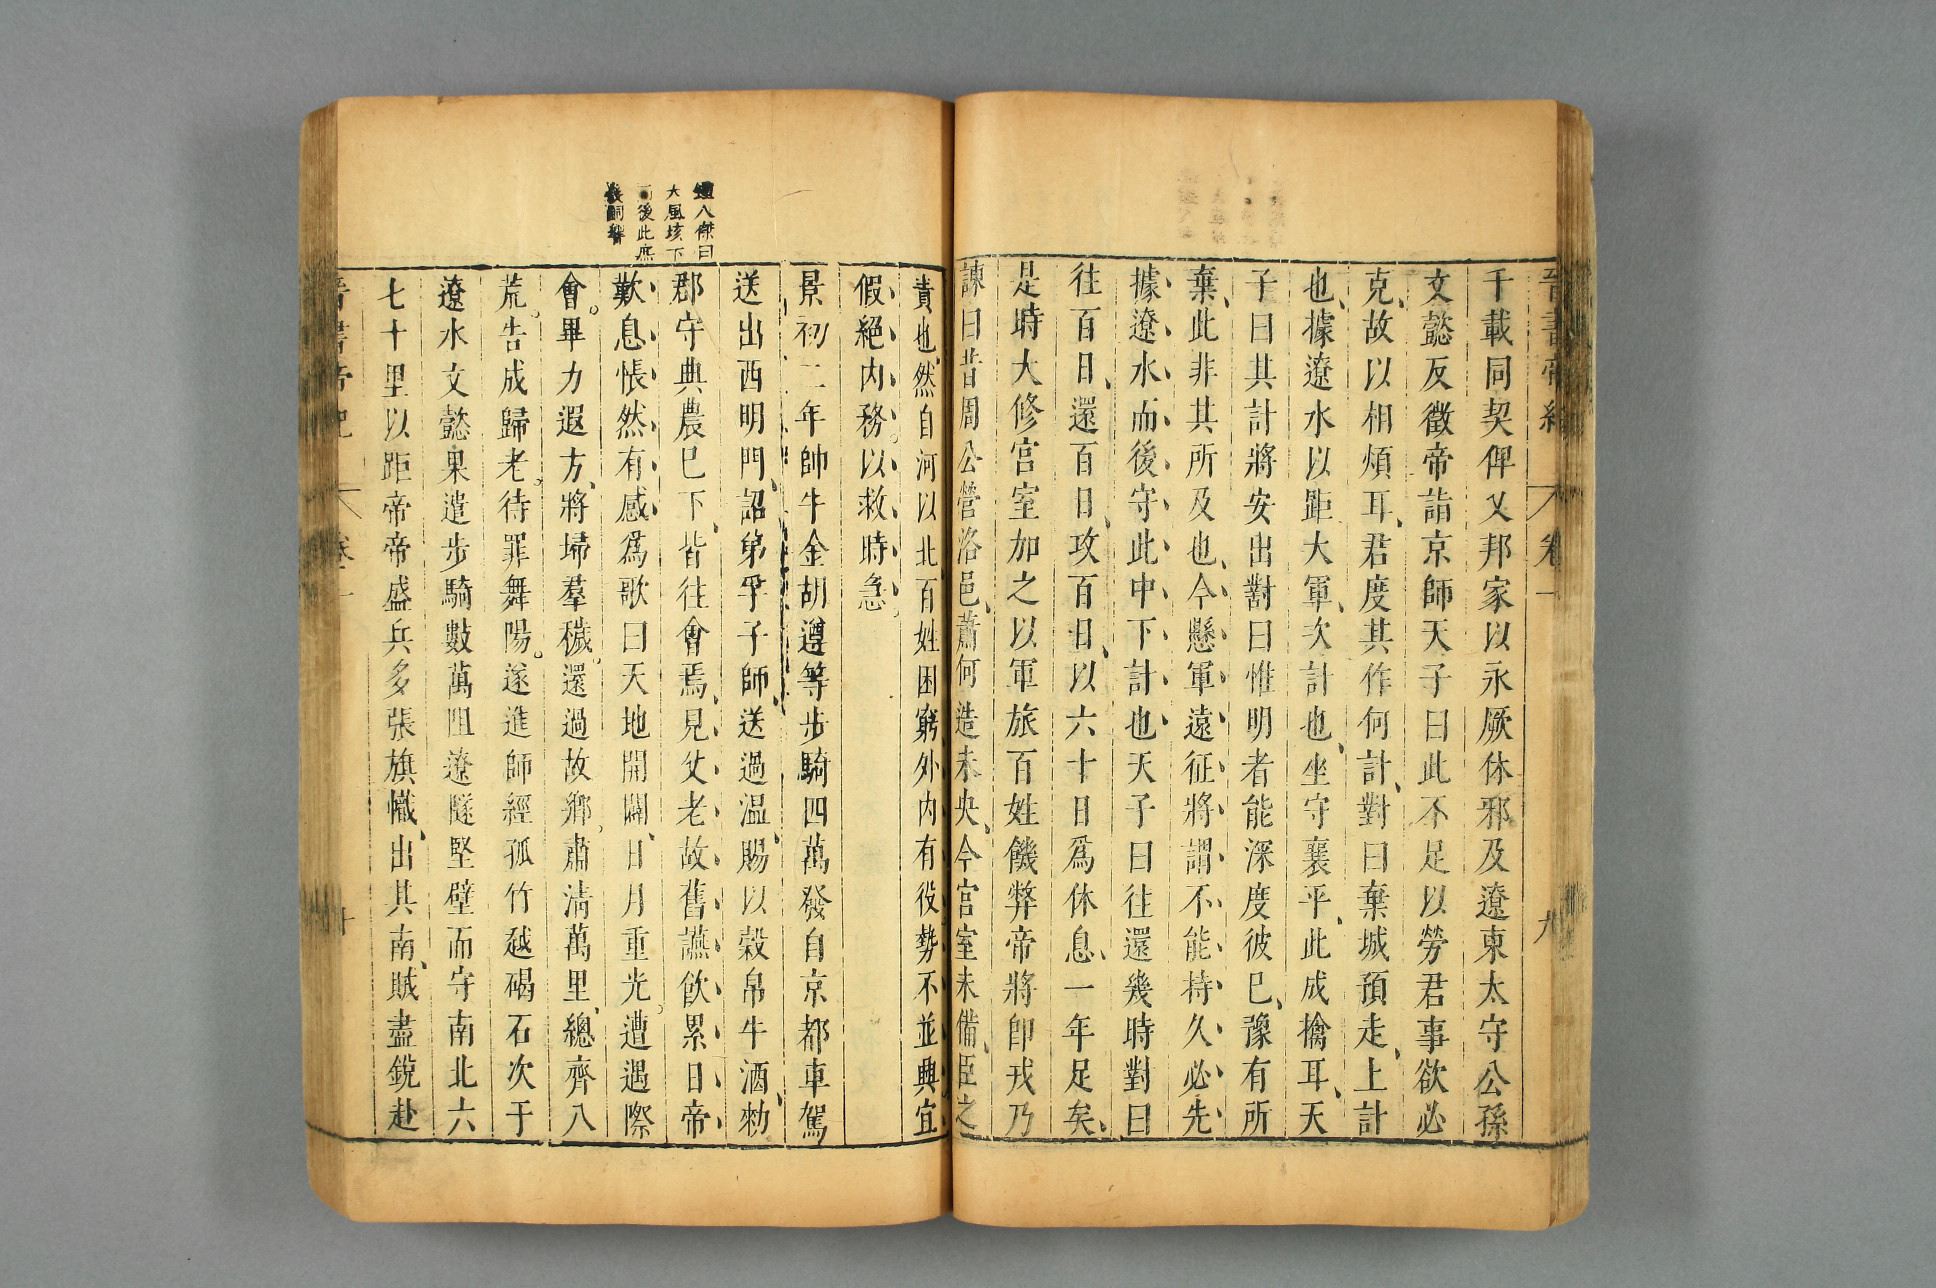 晉書帝紀 卷一 九
千載同契俾乂邦家以永厥休邪及遼東太守公孫
文懿反徵帝詣京師天子曰此不足以勞君事欲必
克故以相煩耳君度其作何計對曰棄城預走上計
也據遼水以距大軍次計也坐守襄平此成擒耳天
子曰其計將安出對曰惟明者能深度彼巳豫有所
棄此非其所及也今懸軍遠征將謂不能持久必先
據遼水而後守此中下計也天子曰往還幾時對曰
往百日還百日攻百日以六十日爲休息一年足矣
是時大修宮室加之以軍旅百姓饑弊帝將卽戎乃
諫曰昔周公營洛邑蕭何造未央今宮室未備臣之
責也然自河以北百姓困窮外内有役勢不並興宜
假絕内務以救時急
景初二年帥牛金胡遵等步騎四萬發自京都車駕
送出西明門詔弟孚子師送過溫賜以穀帛牛酒勑
郡守典農巳下皆往會焉見父老故舊讌飲累日帝
歎息悵然有感爲歌曰天地開闢日月重光遭遇際
會畢力遐方將埽羣穢還過故鄉肅淸萬里總齊八
荒告成歸老待罪舞陽遂進師經孤竹越碣石次于
遼水文懿果遣步騎數萬阻遼隧堅壁而守南北六
七十里以距帝帝盛兵多張旗幟出其南賊盡銳赴
晉書帝紀 卷一 十
人傑曰
大風垓下
後此庶